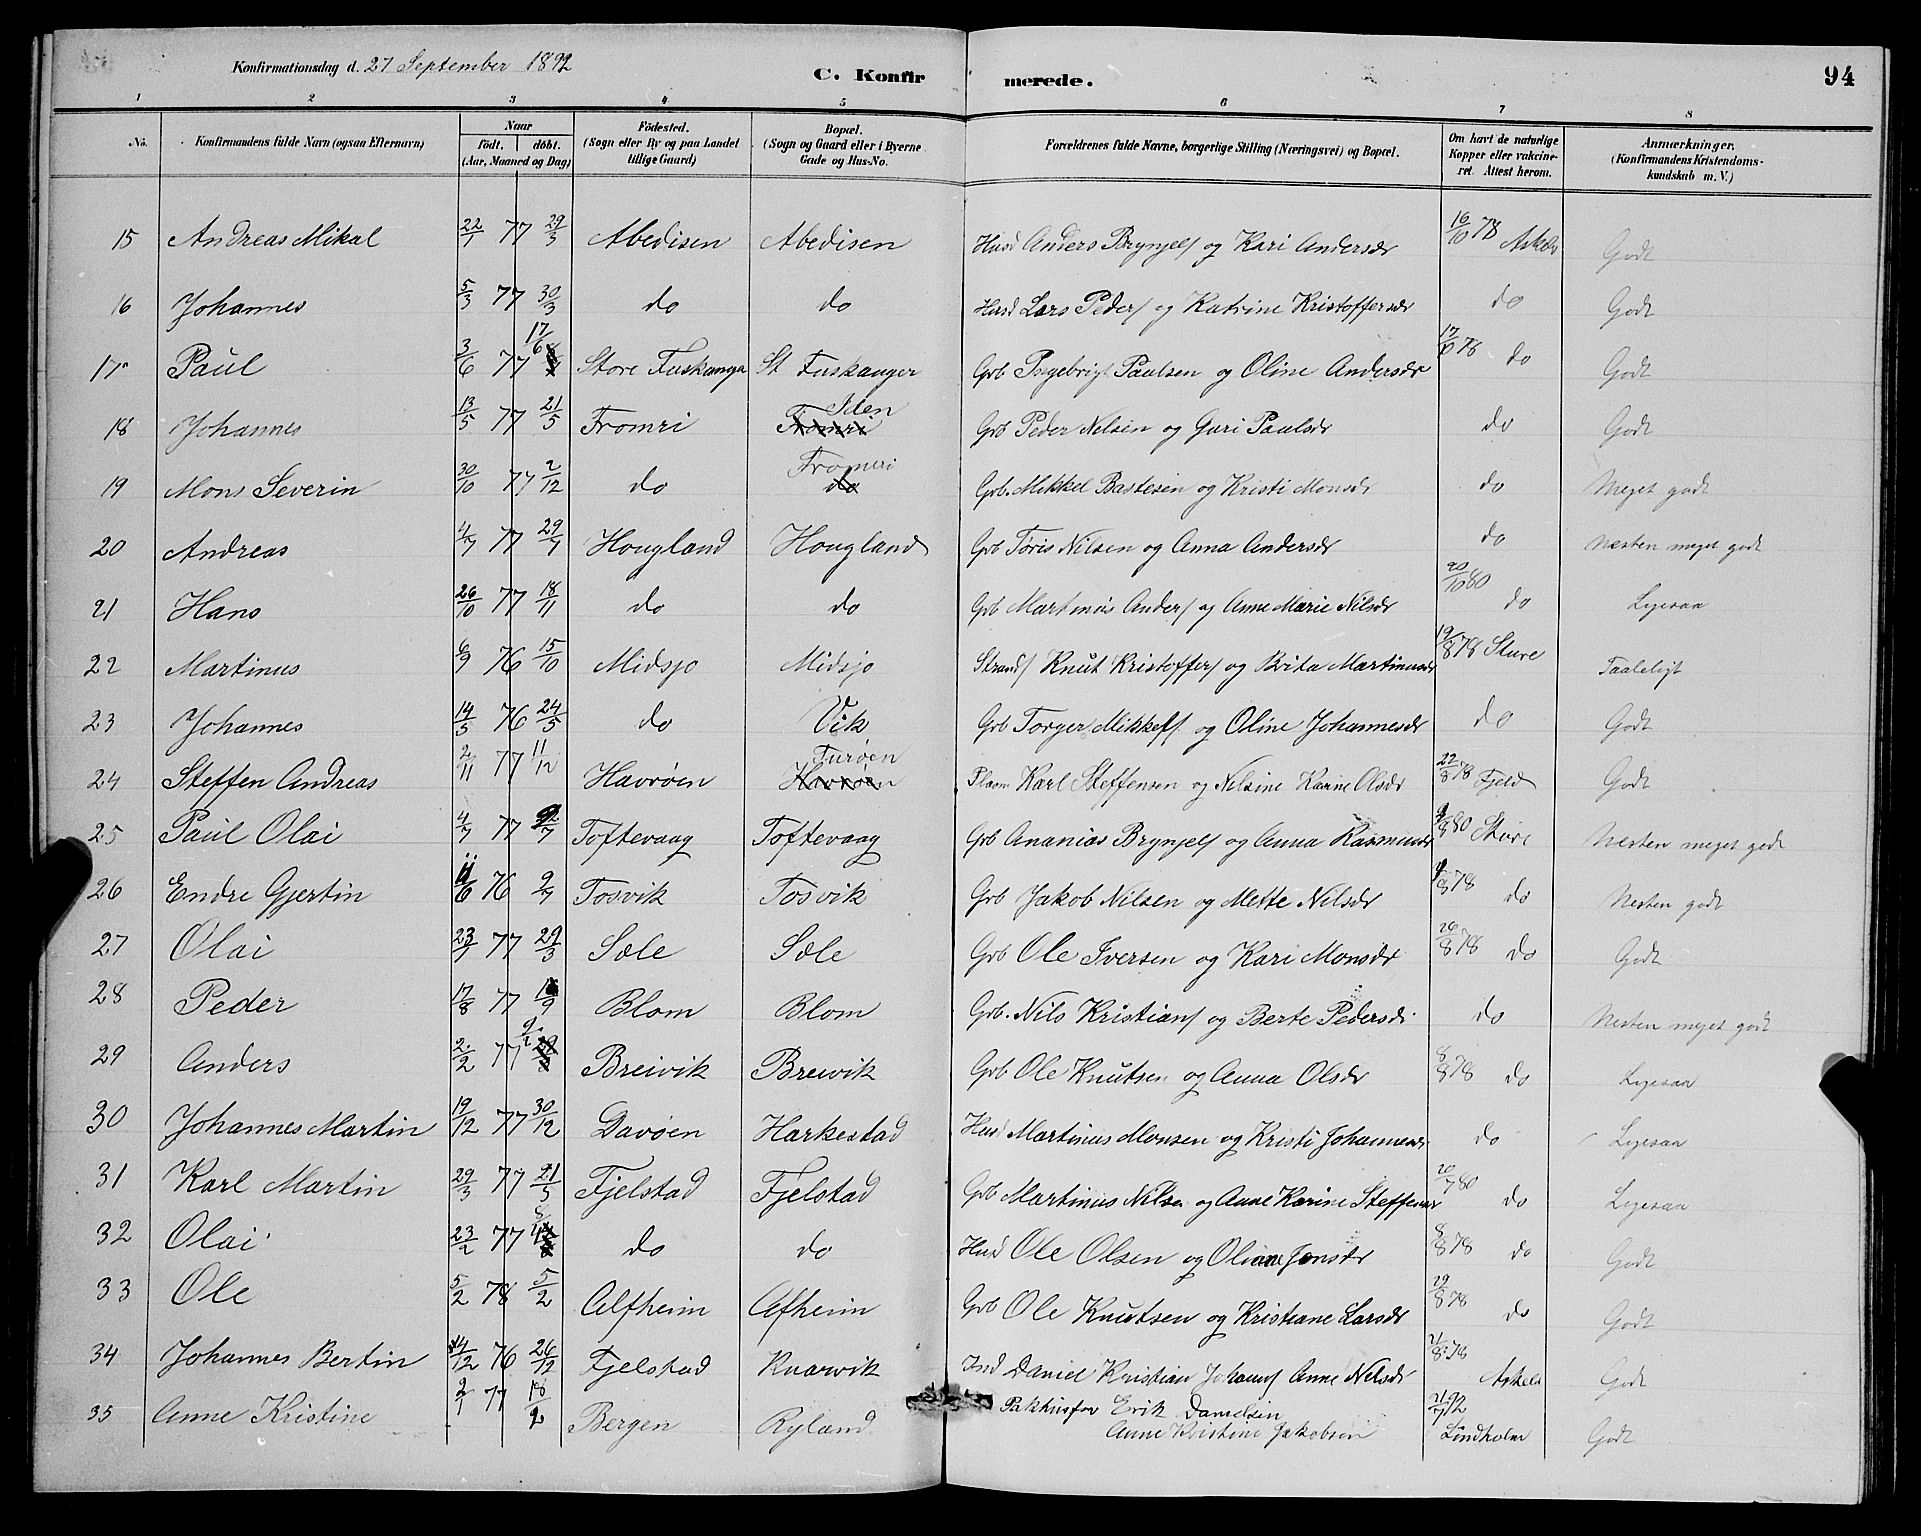 Konfirmationsdag d. 27 September 1892
C. Konfirmerede.
94
1 2 3 4 5 6 7 8
No. Konfirmandens fulde Navn (ogsaa Efternavn) Naar födt. döbt. (Aar, Maaned og Dag) Födested. (Sogn eller By og paa Landet tillige Gaard) Bopæl. (Sogn og Gaard eller i Byerne Gade og Hus-No. Forældrenes fulde Navne, borgerlige Stilling (Næringsvei) og Bopæl. Om havt de naturlige Kopper eller vakcineret. Attest herom. Anmærkninger. (Konfirmandens Kristendomskundskab m. V.)
15 Andreas Mikal 22/1 77 29/3 Abedisen Abedisen Husd Anders Brynjels og Kari Andersdr 16/10 78 Askelv Godt
16 Johannes 5/3 77 30/3 do do Husd Lars Peders og Katrine Kristoffersdr do Godt
17 Paul 3/6 77 17/6 Store Fuskanger St Fuskanger Grb Ingebrigt Paulsen og Oline Andersdr 17/6 78 do Godt
18 Johannes 13/5 77 21/5 Fromri Iden Grb Peder Nelsen og Guri Paulsdr do Godt
19 Mons Severin 30/10 77 2/12 do Fromri Grb. Mikkel Bastesen og Kristi Monsdr do Meget godt
20 Andreas 4/7 77 29/7 Hougland Hougland Grb Toris Nilsen og Anna Andersdr do Næsten meget godt
21 Hans 26/10 77 18/11 do do Grb Martinus Anders og Anne Marie Nilsdr 20/10 80 do Ligesaa
22 Martinus 6/9 76 15/10 Midsjo Midsjo Strands Knut Kristoffers og Brita Martinusdr 19/8 78 Sture Taaleligt
23 Johannes 14/5 76 24/5 do Vik Grb Torger Mikkels og Oline Johannesdr do Godt
24 Steffen Andreas 2/11 77 11/12 Havrøen Turøen Plasm Karl Steffensen og Nelsine Karine Olsdr 22/8 78 Fjeld Godt
25 Paul Olai 4/7 77 Toftevaag Toftevaag Grb Ananias Brynjels og Anna Rasmusdr 80 Sture Næsten meget godt
26 Endre Gjertin 11/6 76 2/7 Tosvik Tosvik Grb Jakob Nilsen og Mette Nilsdr 78 do Nesten godt
27 Olai 77 29/3 Sæle Sæle Grb Ole Iversen og Kari Monsdr 26/8 78 do Godt
28 Peder 17/8 77 Blom Blom Grb. Nils Kristians og Berte Pedersdr do Nesten meget godt
29 Anders 2/2 77 Breivik Breivik Grb Ole Knutsen og Anna Olsdr 8/8 78 do Ligesaa
30 Johannes Martin 19/12 77 30/12 Davøen Harkestad Husd Martinus Monsen og Kristi Johannesdr do Ligesaa
31 Karl Martin 29/3 77 21/5 Fjelstad Fjelstad Grb Martinus Nilsen og Anne Karine Steffensdr 20/7 80 do Ligesaa
32 Olai 23/2 77 do do Husd Ole Olsen og Oliane Jensdr 8/8 78 do Godt
33 Ole 5/2 78 5/2 Alfheim Afheim Grb Ole Knutsen og Kristiane Larsdr 29/8 78 do Godt
34 Johannes Bertin 14/12 76 26/12 Fjelstad Knarvik Ind Daniel Kristian Johans Anne Nilsdr 8 78 Askelv Godt
35 Anne Kristine 2/1 77 18/2 Bergen Ryland Pakhusfor Erik Danielsen
Anne Kristine Jakobsen 92 Lindholm Godt